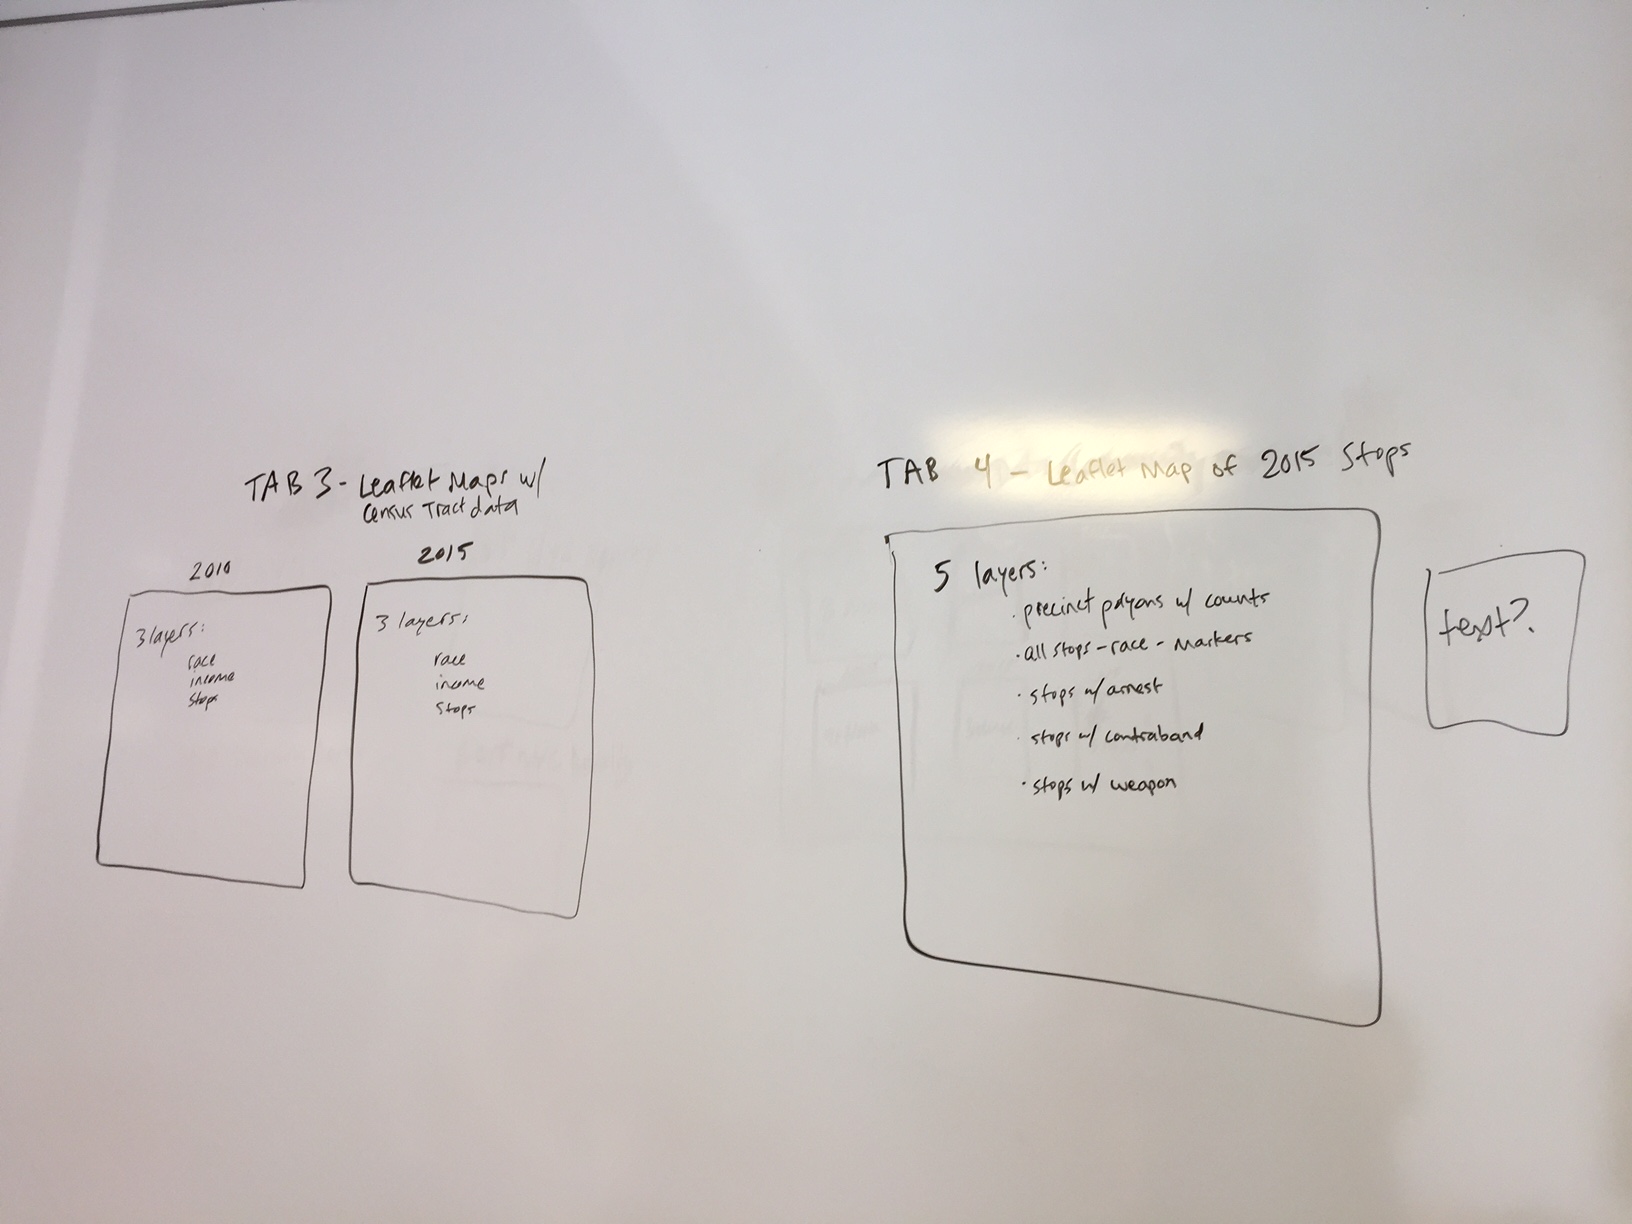 TAB 3 - Leaflet Maps w/
Census Tract data
2010
3 layers:
race
income
stops
2015
3 layers:
race
income
stops
TAB 4 - Leaflet Map of 2015 Stops
5 layers:
· precinct polygons w/ counts
· all stops - race - markers
· stops w/ arrest
· stops w/ contraband
· stops w/ weapon
text?